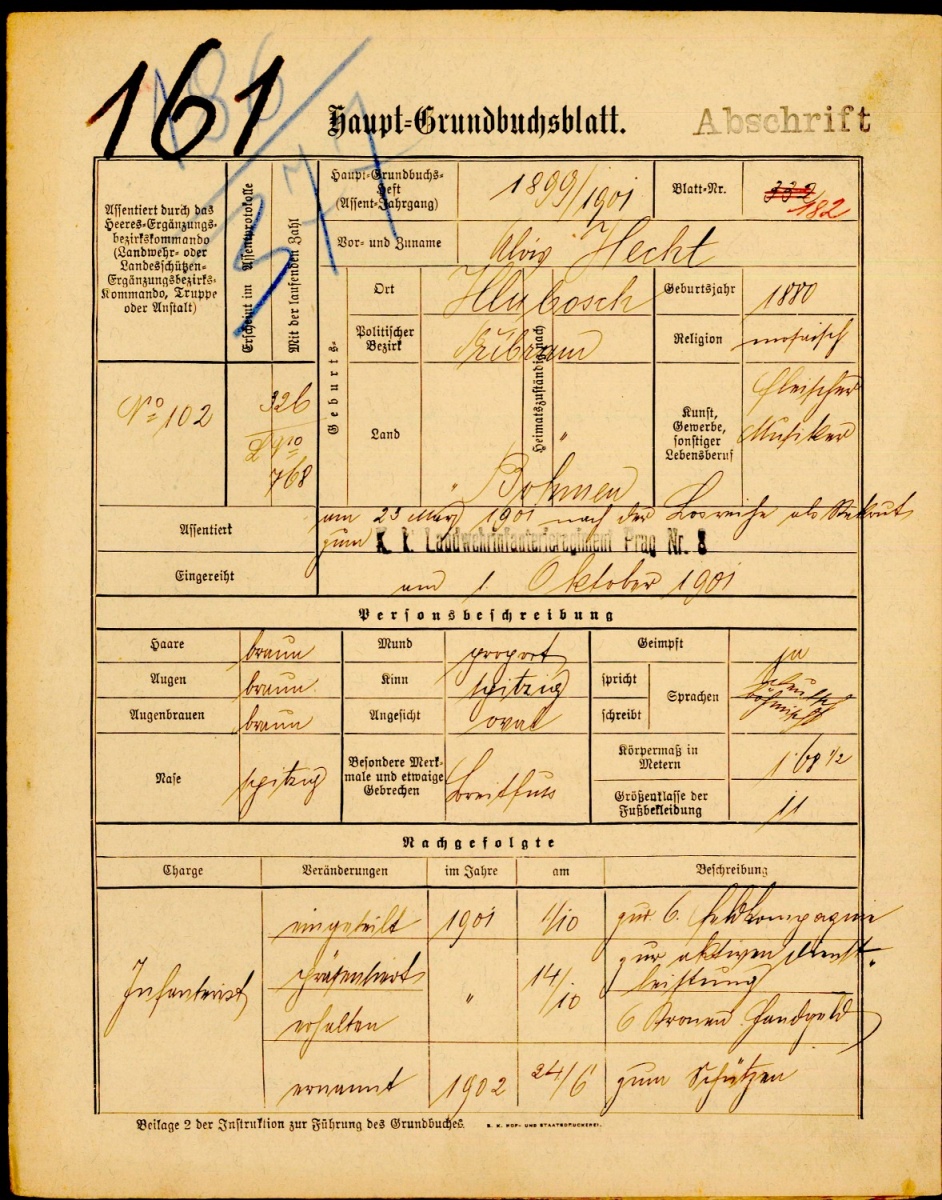 161
186/377
Haupt-Grundbuchsblatt.
Abschrift
Assentiert durch das
Heeres-Ergänzungs-
bezirkskommando
(Landwehr- oder
Landesschützen-
Ergänzungsbezirks-
Kommando, Truppe
oder Anstalt)
Erscheint im Assentprotokolle
Mit der laufenden Zahl
Haupt-Grundbuchs-
Heft
(Assent-Jahrgang)
1899/1901
Blatt-Nr.
332
182
Vor- und Zuname
Alois Hecht
Geburts-
Ort
Hlubosch
Geburtsjahr
1880
Politischer
Bezirk
Přibram
Heimatszuständig nach
Religion
mosaisch
No 102
326
768
Land
"
" Böhmen
Kunst,
Gewerbe,
sonstiger
Lebensberuf
Fleischer
Musiker
Assentiert
am 23 März 1901 nach der Losreihe als Rekrut
zum K. k. Landwehrinfanterieregiment Prag Nr. 8
Eingereiht
am 1. Oktober 1901
Personsbeschreibung
Haare
braun
Mund
proport
Geimpft
ja
Augen
braun
Kinn
spitzig
spricht
schreibt
Sprachen
deutsch
böhmisch
Augenbrauen
braun
Angesicht
oval
Nase
spitzig
Besondere Merk-
male und etwaige
Gebrechen
Breitfuss
Körpermaß in
Metern
1·68 1/2
Größenklasse der
Fußbekleidung
11
Nachgefolgte
Charge
Veränderungen
im Jahre
am
Beschreibung
Infanterist
eingeteilt 1901 1/10 zur 6. Feldkompagnie
präsentiert " 14/10 zur aktiven Dienst-
leistung
erhalten 6 Kronen Handgeld
ernannt 1902 24/6 zum Schützen
Beilage 2 der Instruktion zur Führung des Grundbuches.
K. K. HOF- UND STAATSDRUCKEREI.